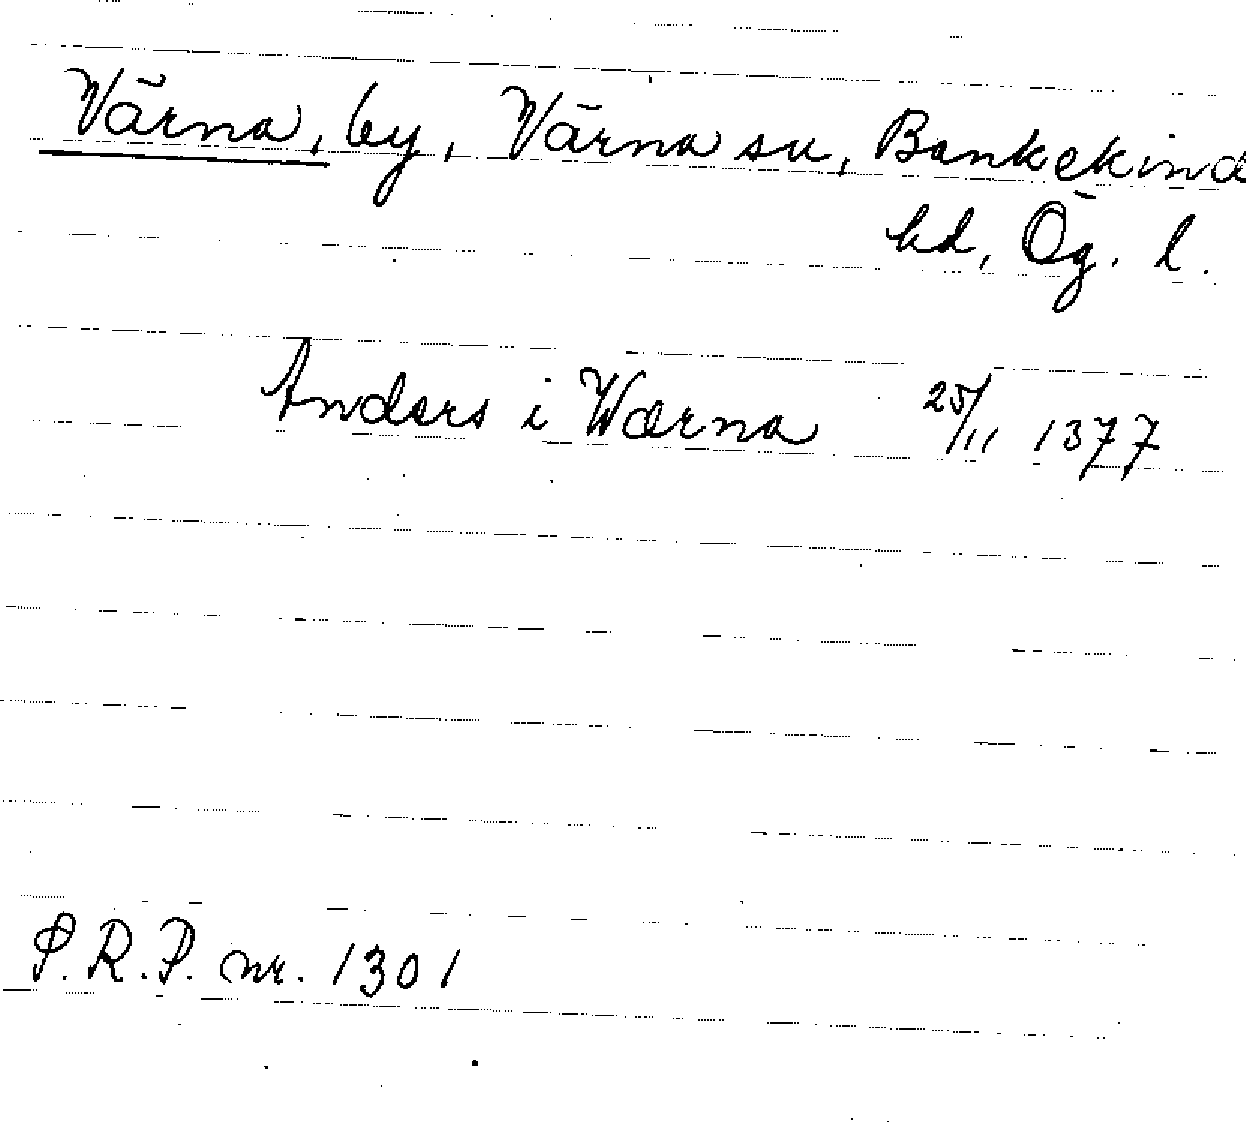 Värna, by, Värna sn, Bankekind
hd, Ög. l.
Anders i Wærna 25/11 1377
P.R.P. nr. 1301